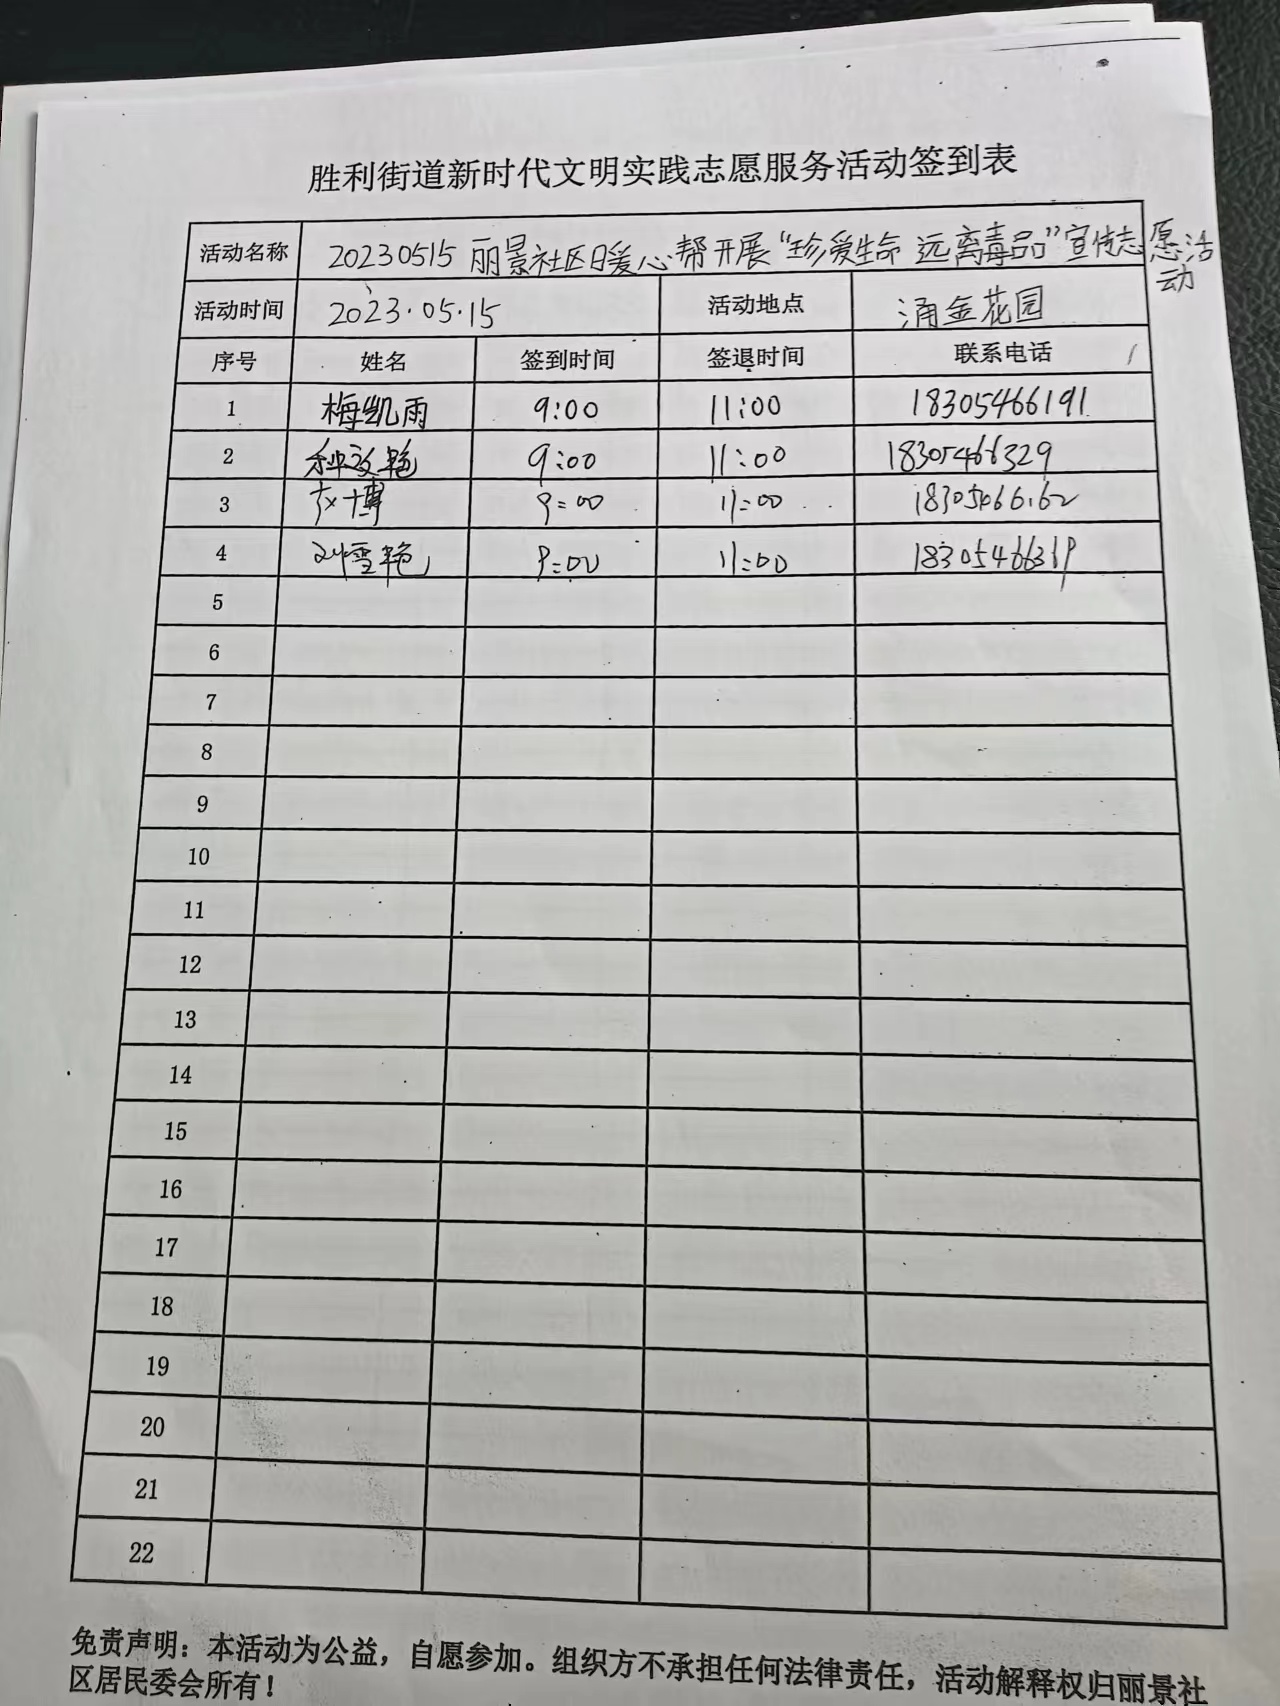 胜利街道新时代文明实践志愿服务活动签到表
活动名称 20230515 丽景社区日暖心帮开展“珍爱生命 远离毒品”宣传志愿活动
活动时间 2023.05.15 活动地点 涌金花园
序号 姓名 签到时间 签退时间 联系电话
1 梅凯雨 9:00 11:00 18305466191
2 9:00 11:00 18305466329
3 9:00 11:00
4 刘雪艳 9:00 11:00 18305466319
5
6
7
8
9
10
11
12
13
14
15
16
17
18
19
20
21
22
免责声明：本活动为公益，自愿参加。组织方不承担任何法律责任，活动解释权归丽景社
区居民委会所有！